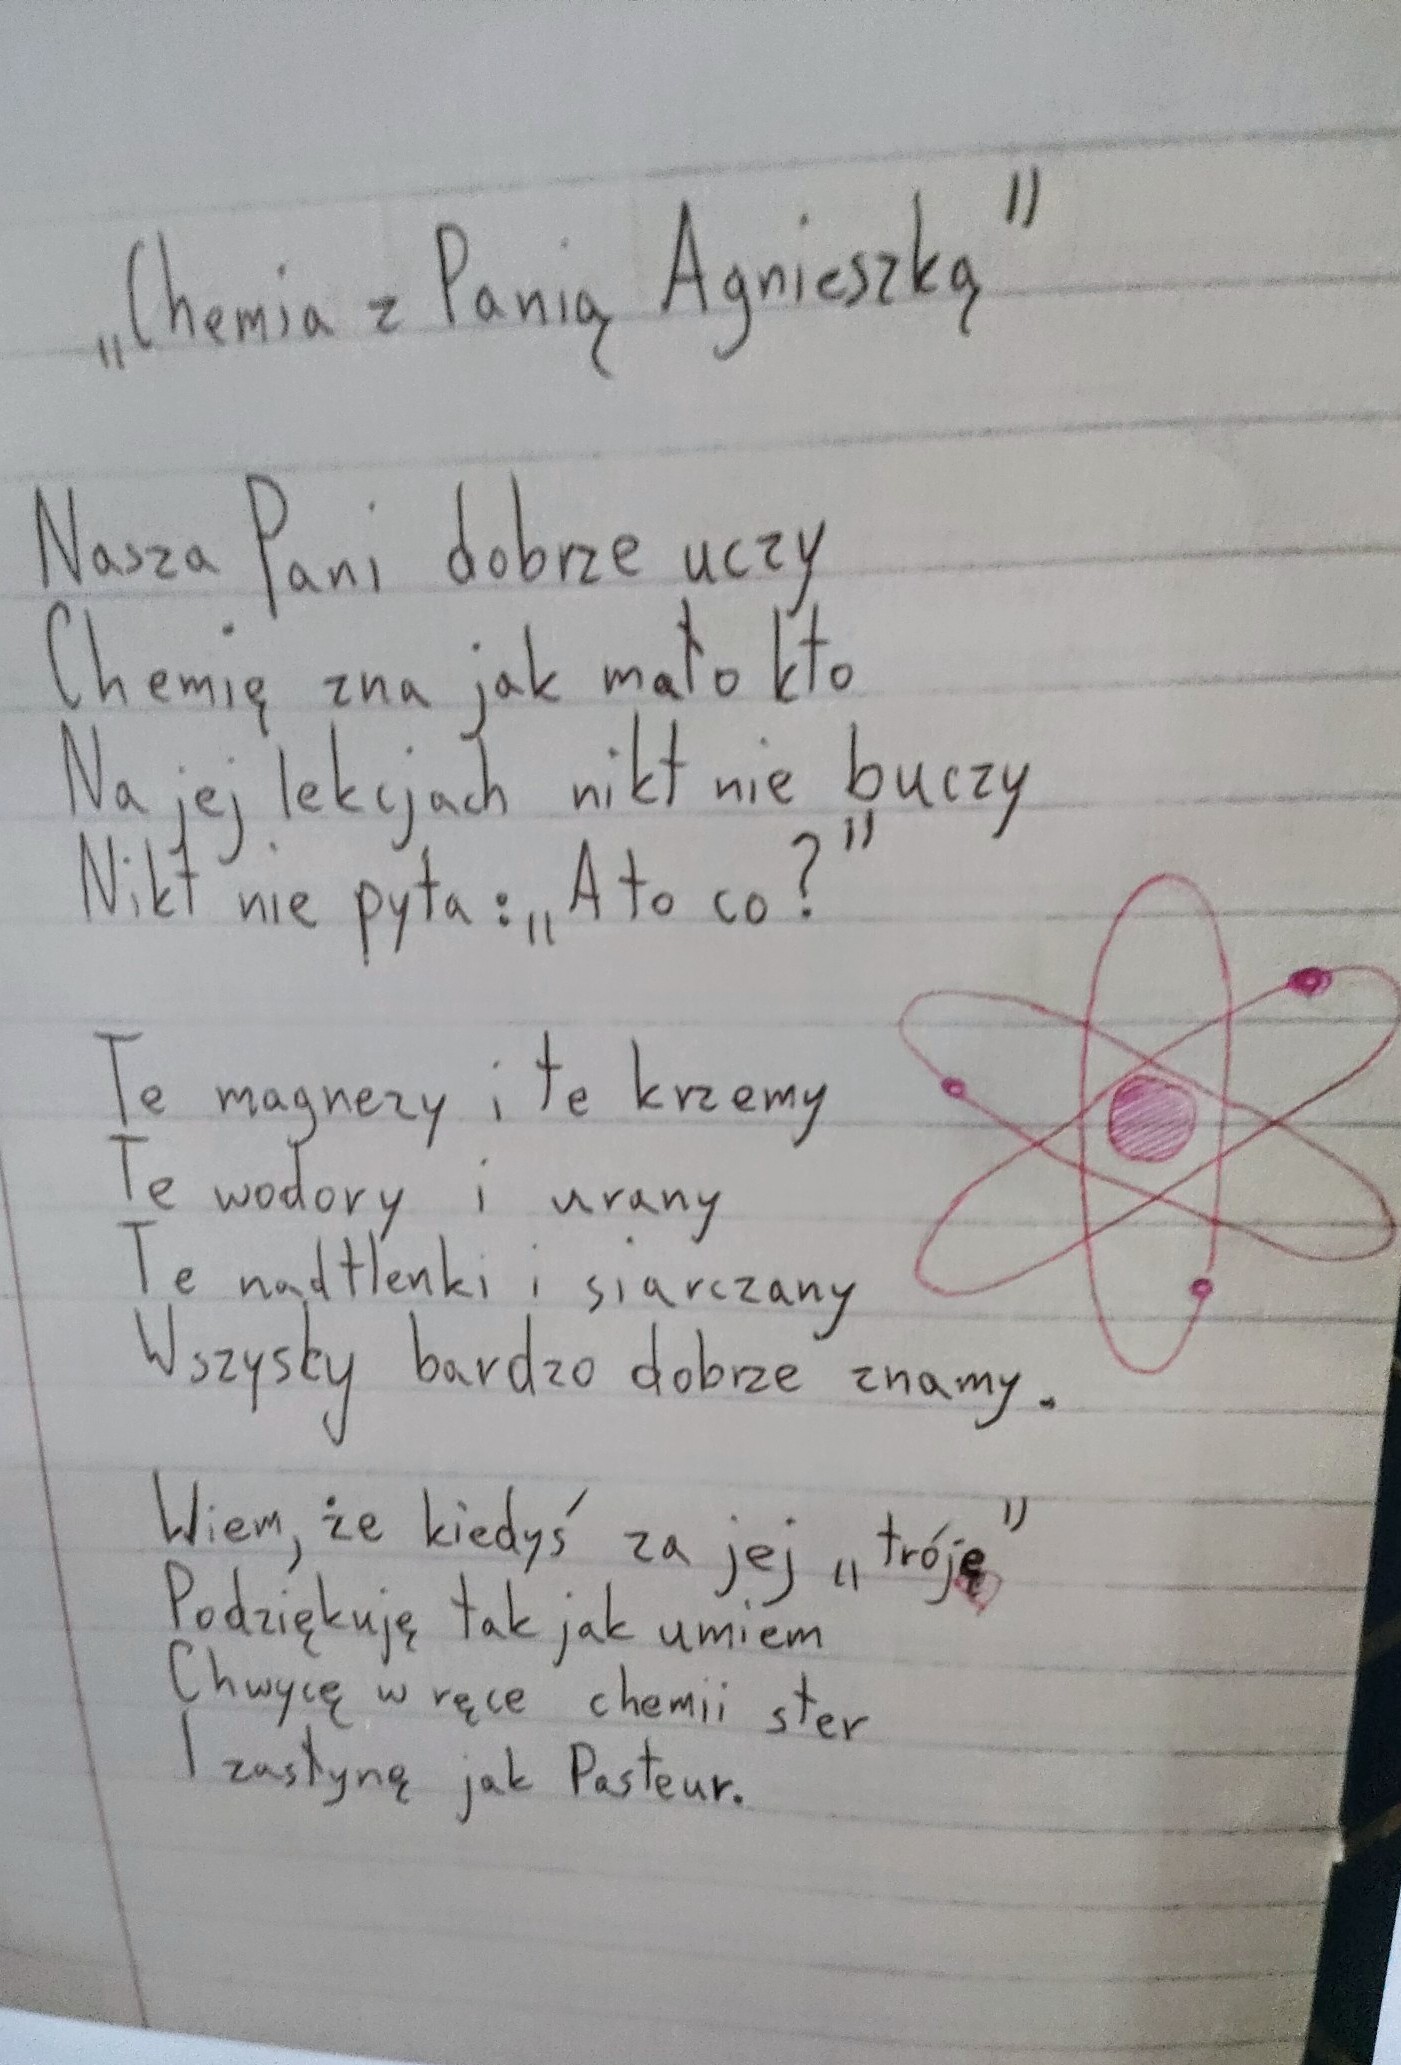 „Chemia z Panią Agnieszką"
Nasza Pani dobrze uczy
Chemię zna jak mało kto
Na jej lekcjach nikt nie buczy
Nikt nie pyta: „A to co?"
Te magnezy i te krzemy
Te wodory i urany
Te nadtlenki i siarczany
Wszysky bardzo dobrze znamy.
Wiem, że kiedyś za jej „tróję"
Podziękuję tak jak umiem
Chwycę w ręce chemii ster
I zasłynę jak Pasteur.